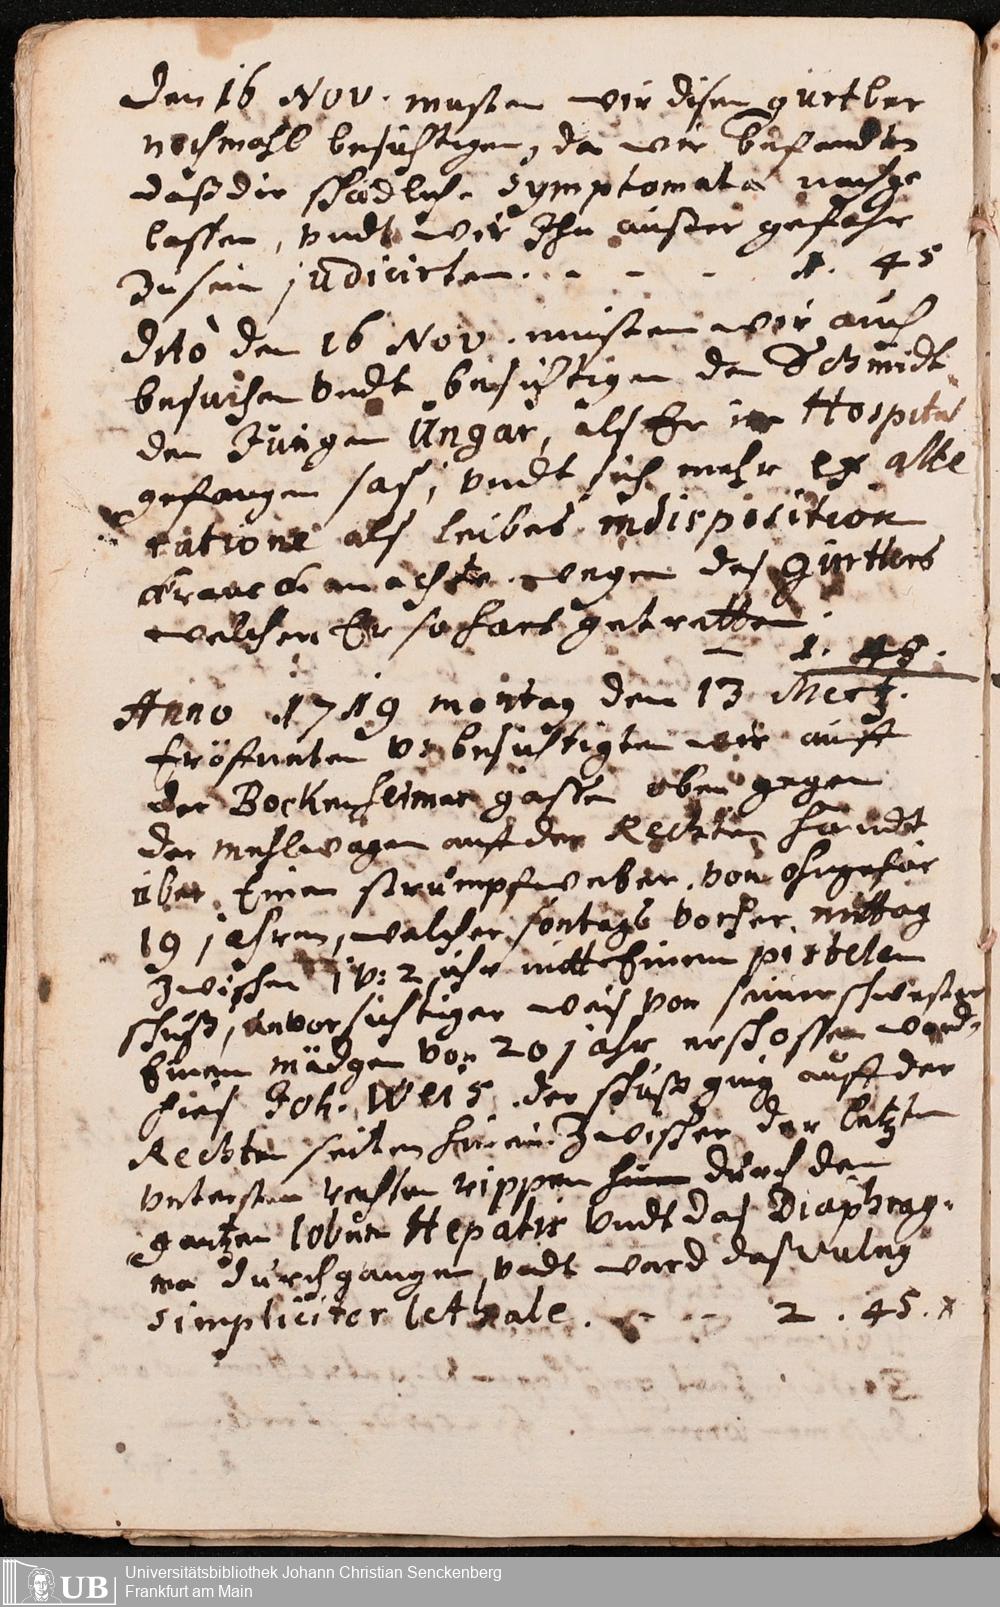 Den 16 Nov. musten wir disen gürtler
nochmahl besichtigen, da wir befandten
daß die schädliche Symptomata nachge
lassen, vndt wir Ihn ausser gefahr
zu sein judicirten. - - - 1. 45
dito den 16 Nov. musten wir auch
besuchen vndt besichtigen den Schmidt
den Jungen Ungar, als Er im Hospital
gefangen sas, vndt sich mehr ex alte
ratione als leibes indisposition
kranck machte wegen des gürtlers
welchen Er so hart getretten.
- 1. 45.
Anno 1719 montag den 13 Mertz.
Eröfneten v: besichtigten wir auff
der Bockenheimer gassen oben gegen
der mehlwagen auff der Rechten handt
über Einen strumpfweber, von ohngefär
19 jahren, welcher sontags vorher mittag
zwischen 1 v: 2 uhr mitt Einem pistolen
schuß, unvorsichtiger weis von seiner schwester
Einem mädgen von 20 jahr erschossen word,
hies Joh. Weis. der schuß ging auff der
Rechten seiten hinein zwischen der letzten
vntersten rechten rippen durch den
gantzen lobum Hepatis vndt das Diaphrag-
ma durchgangen, vndt ward das vulnus
simpliciter lethale. - - 2. 45. x
Universitätsbibliothek Johann Christian Senckenberg
Frankfurt am Main
UB